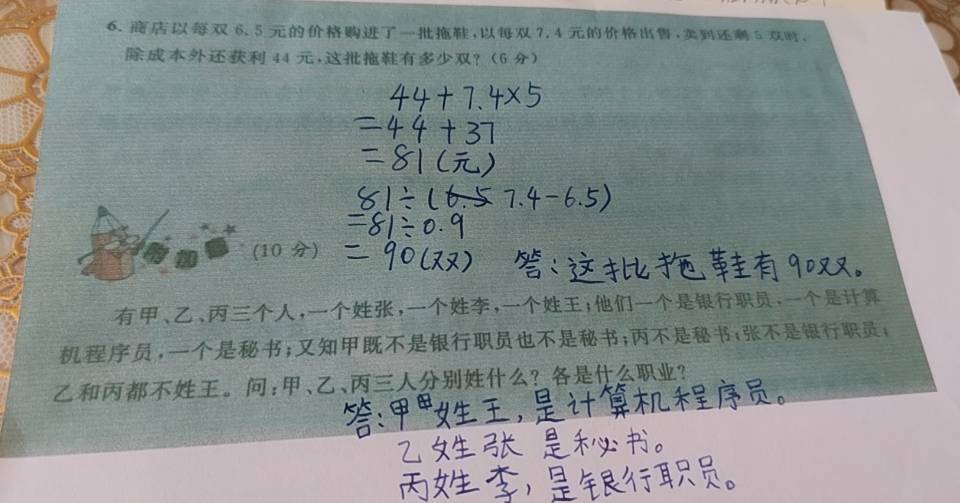 6、商店以每双6.5元的价格购进了一批拖鞋,以每双7.4元的价格出售,卖到还剩5双时,
除成本外还获利44元,这批拖鞋有多少双?(6分)
44+7.4×5
=44+37
=81(元)
81÷(7.4-6.5)
=81÷0.9
=90(双)
答:这批拖鞋有90双。
附加题
(10分)
有甲、乙、丙三个人,一个姓张,一个姓李,一个姓王;他们一个是银行职员,一个是计算
机程序员,一个是秘书;又知甲既不是银行职员也不是秘书;丙不是秘书;张不是银行职员;
乙和丙都不姓王。问:甲、乙、丙三人分别姓什么?各是什么职业?
答:甲姓王,是计算机程序员。
乙姓张 是秘书。
丙姓李,是银行职员。